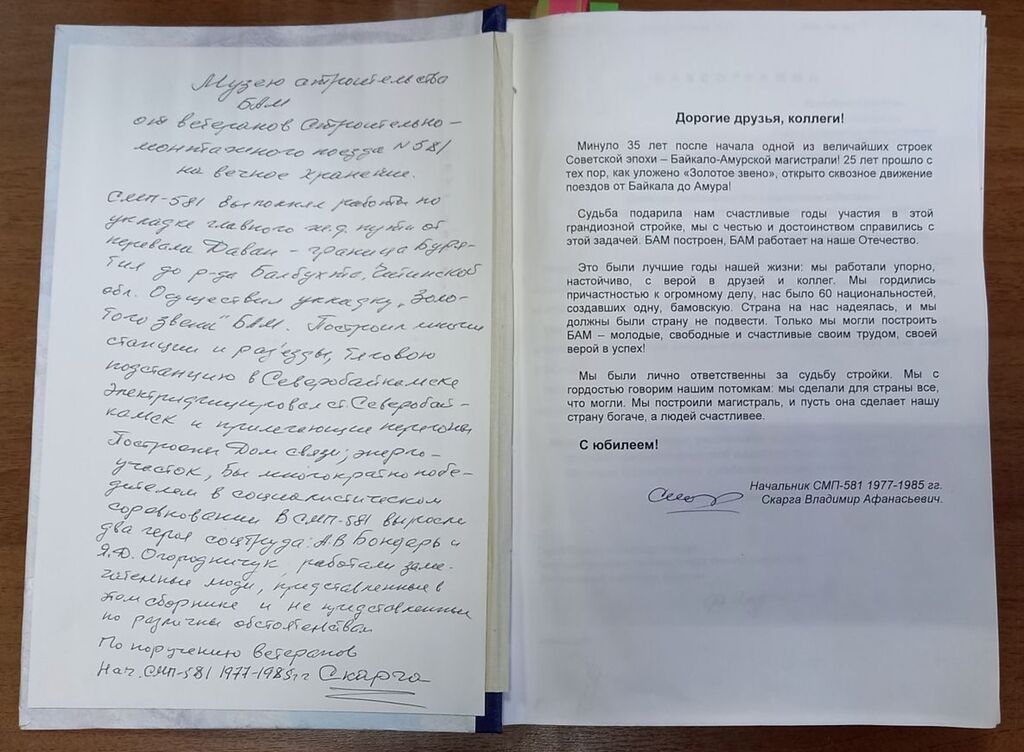 Музею строительства
БАМ
от ветеранов Строительно-
монтажного поезда N 581
на вечное хранение.
СМП-581 выполнял работы по
укладке главного ж.д. пути от
перевала Даван - граница Буря-
тия до р-да Балбухта, Читинской
обл. Осуществил укладку „Золо-
того звена" БАМ. Построил многие
станции и раз'езды, тяговою
подстанцию в Северобайкальске
Электрифицировал ст. Северобай-
и прилегающие перегоны
Построены Дом связи; энерго-
участок, Был многократно побе-
дителем в социалистическом
соревновании В СМП-581 выросли
два героя соцтруда: А.В Бондарь и
Я.Д. Огородничук, работали заме-
чательные люди, представленные в
этом сборнике и не представленные
по различны обстоятельствам
По поручению ветеранов
Нач. СМП-581 1977-1985гг Скарга
Дорогие друзья, коллеги!
Минуло 35 лет после начала одной из величайших строек
Советской эпохи – Байкало-Амурской магистрали! 25 лет прошло с
тех пор, как уложено «Золотое звено», открыто сквозное движение
поездов от Байкала до Амура!
Судьба подарила нам счастливые годы участия в этой
грандиозной стройке, мы с честью и достоинством справились с
этой задачей. БАМ построен, БАМ работает на наше Отечество.
Это были лучшие годы нашей жизни: мы работали упорно,
настойчиво, с верой в друзей и коллег. Мы гордились
причастностью к огромному делу, нас было 60 национальностей,
создавших одну, бамовскую. Страна на нас надеялась, и мы
должны были страну не подвести. Только мы могли построить
БАМ – молодые, свободные и счастливые своим трудом, своей
верой в успех!
Мы были лично ответственны за судьбу стройки. Мы с
гордостью говорим нашим потомкам: мы сделали для страны все,
что могли. Мы построили магистраль, и пусть она сделает нашу
страну богаче, а людей счастливее.
С юбилеем!
Начальник СМП-581 1977-1985 гг.
Скарга Владимир Афанасьевич.